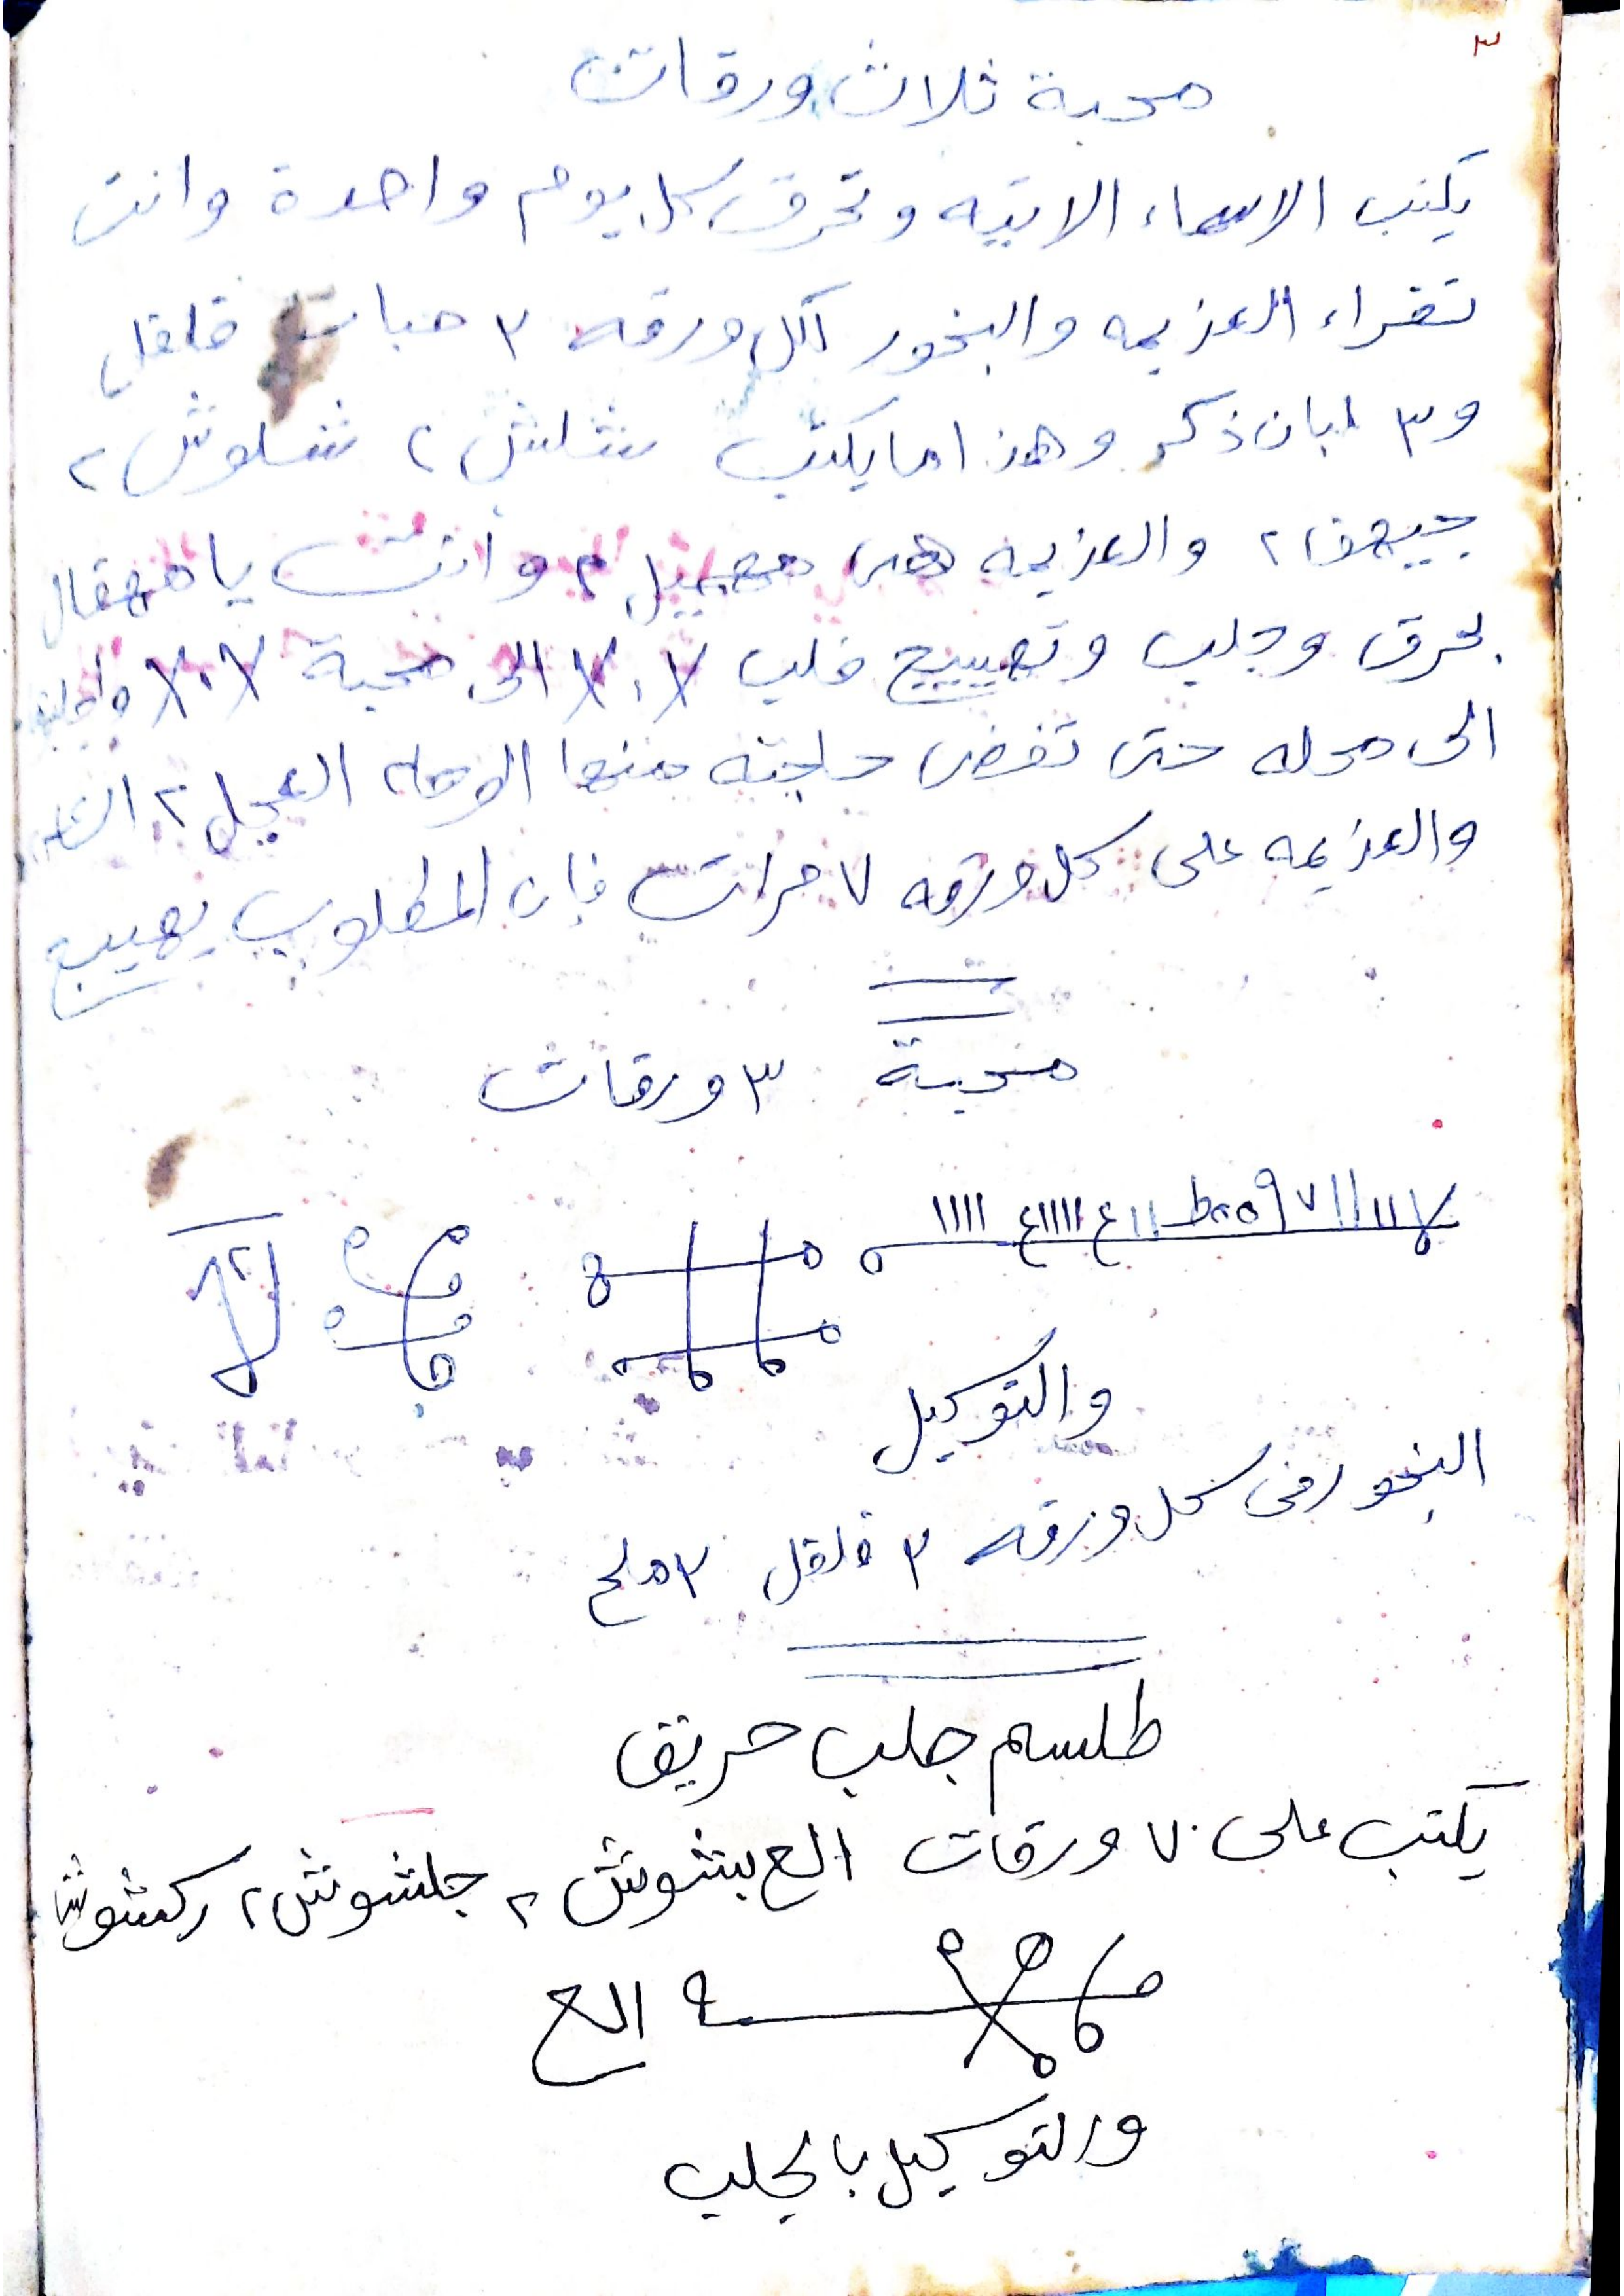 ٣
محبة ثلاث ورقات
يكتب الاسماء الاتيه وتحرق كل يوم واحدة وانت
تقراء العزيمه والبخور لكل ورقه ٣ حبات فلفل
و٣ لبان ذكر وهذا ما يكتب شلش ٢ شلوش ٢
والعزيمه هى وانت يا
بحرق وجلب وتهييج قلب الى محبة
الى محله حتى تقضى حاجته منها الوحا ٢ العجل ٢
والعزيمه على كل ورقه ٧ مرات فإن المطلوب يهييج
محبة ٣ ورقات
والتوكيل
البخور فى كل ورقه ٣ فلفل ٣ ملح
طلسم جلب حريق
يكتب على ٧ ورقات بشوش ٢ جلشوش ٢ ركشوش
والتوكيل بالجلب